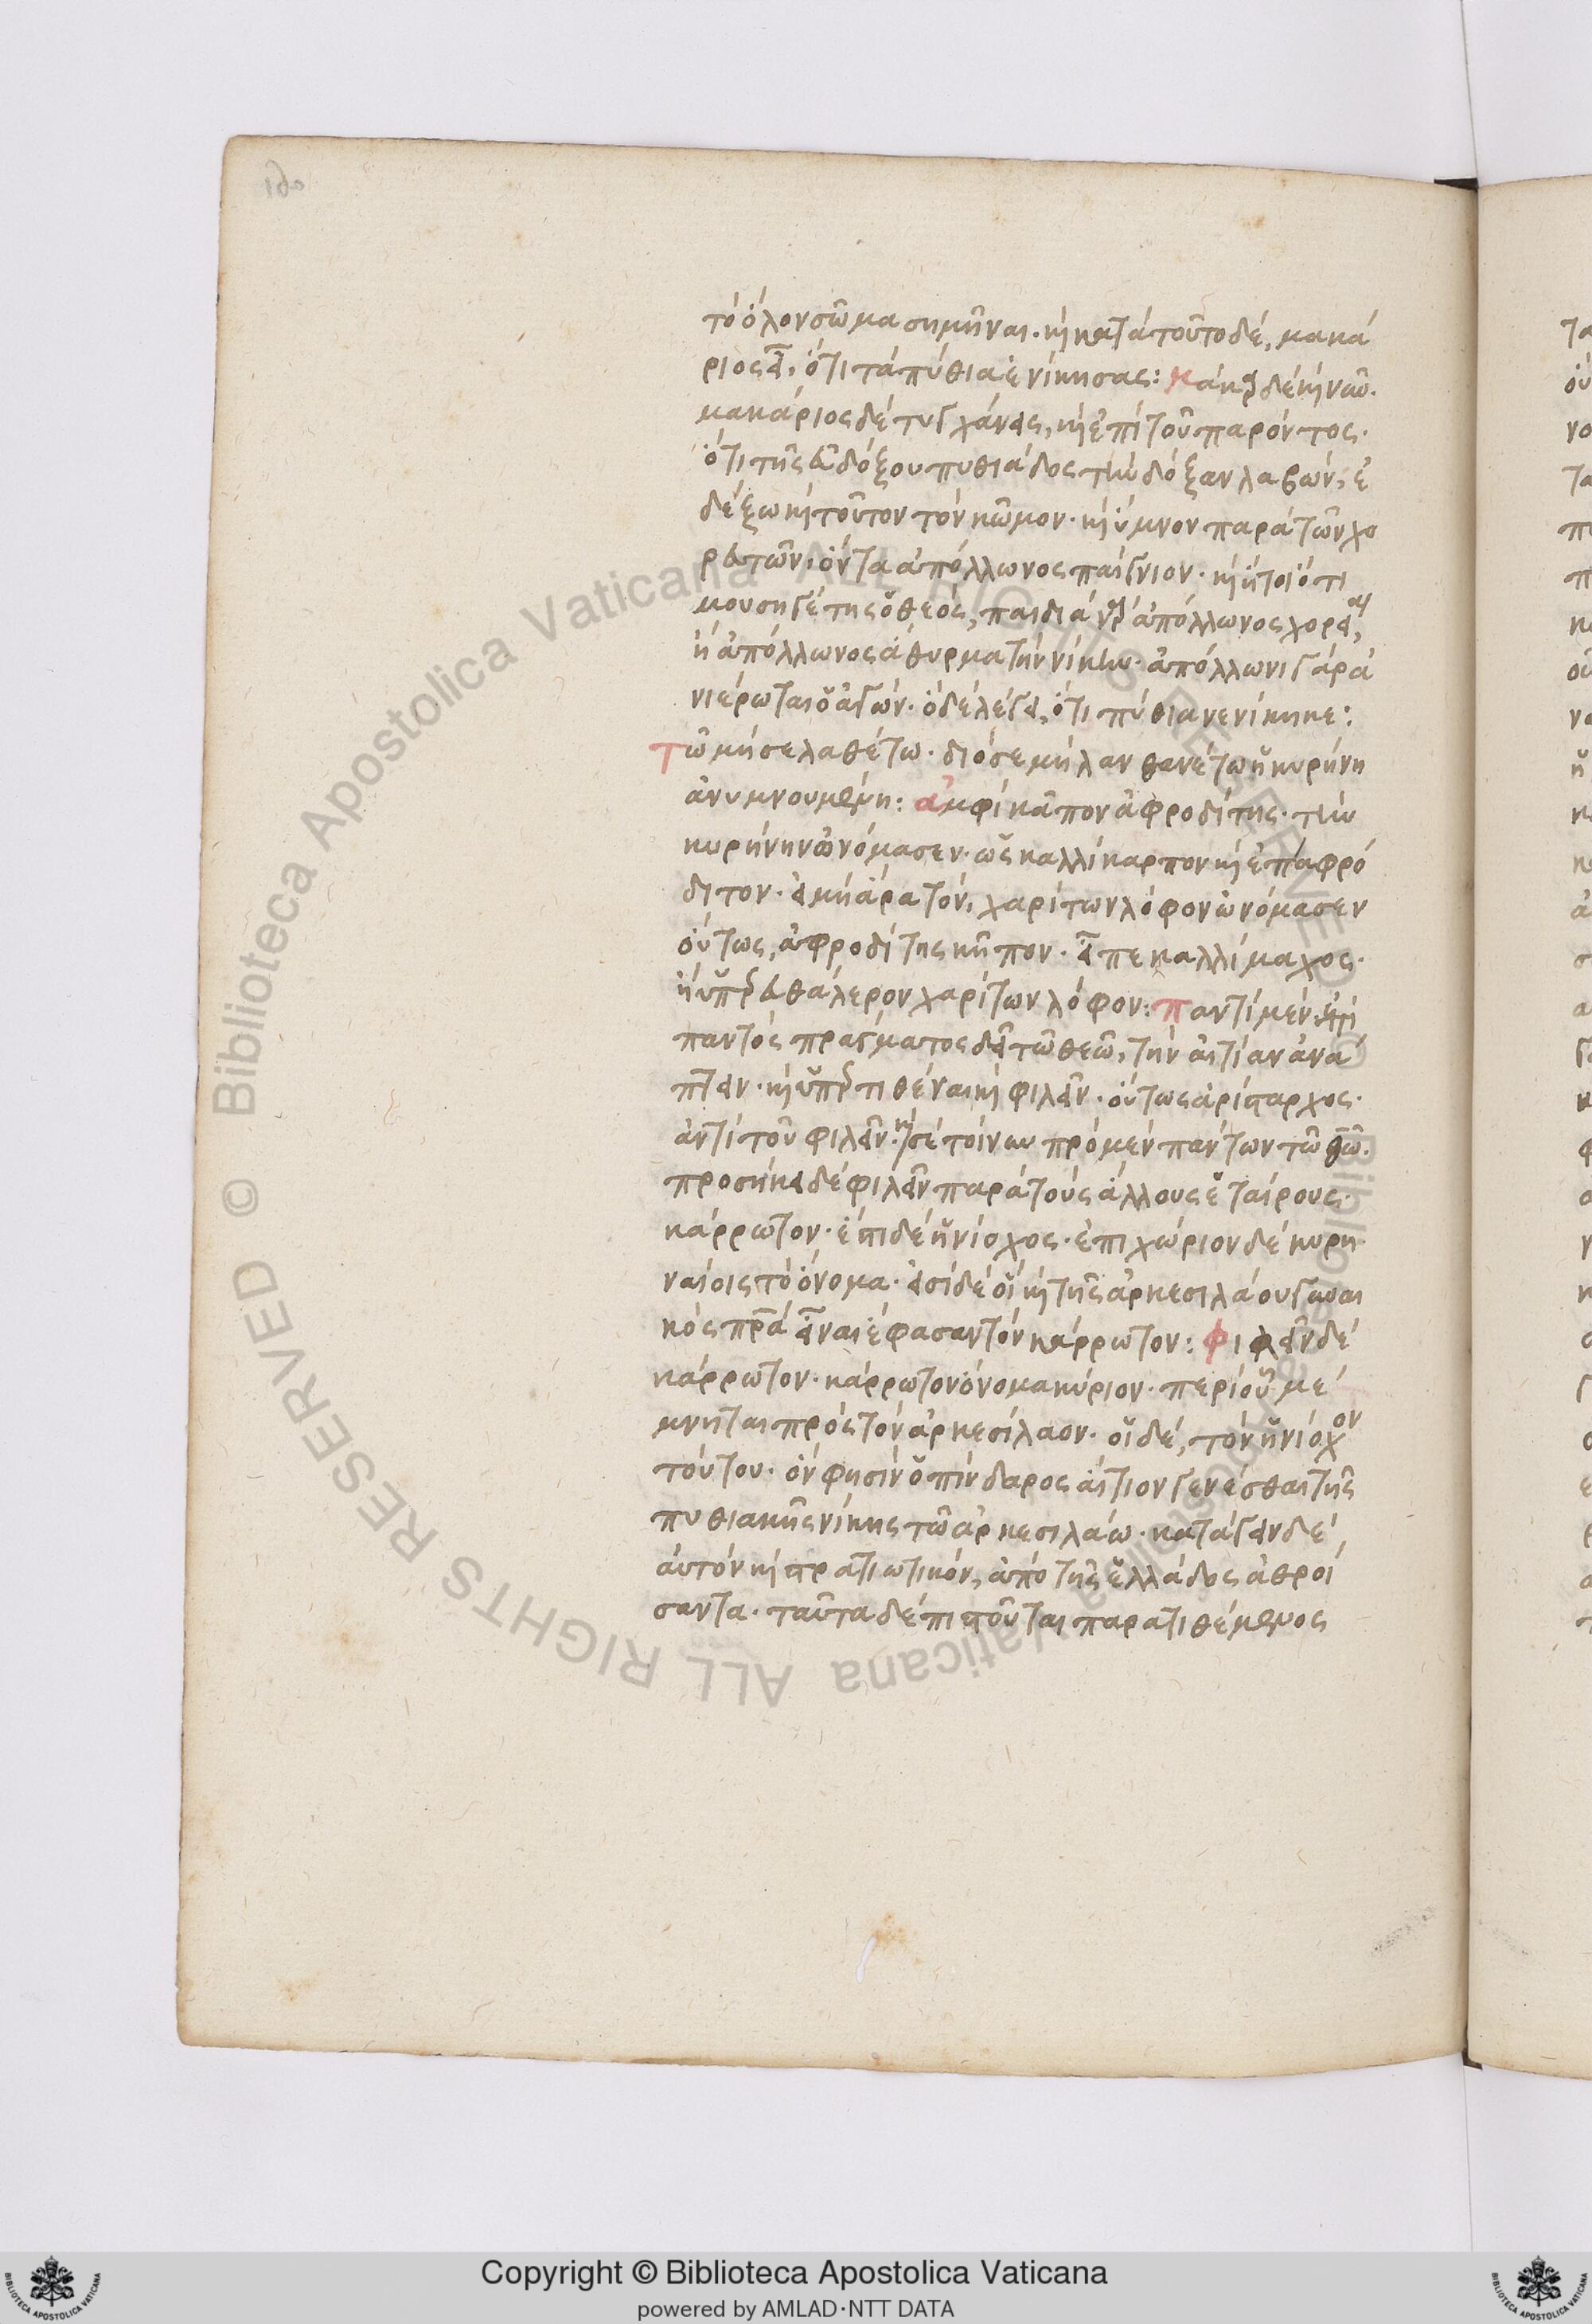 τὸ ὅλον σῶμα σημῆναι. καὶ κατὰ τοῦτο δὲ, μακά
ριος εἶ, ὅτι τὰ πύθια ἐνίκησας: μάκαρ δὲ καὶ νῦν.
μακάριος δὲ τυγχάνεις, καὶ ἐπὶ τοῦ παρόντος.
ὅτι τῆς ἐνδόξου πυθιάδος τὴν δόξαν λαβών, ἐ
δέξω καὶ τοῦτον τὸν κῶμον. καὶ ὕμνον παρὰ τῶν χο
ρευτῶν, ὄντα ἀπόλλωνος παίγνιον. καὶ ἤτοι ὅτι
μουσηγέτης ὁ θεός, παιδιὰ γὰρ ἀπόλλωνος χορεῖαι,
ἢ ἀπόλλωνος ἄθυρμα τὴν νίκην. ἀπόλλωνι γὰρ ἀ
νιέρωται ὁ ἀγών. ὃ δὲ λέγει, ὅτι πύθια νενίκηκε:
Τῶ μή σε λαθέτω. διό σε μὴ λανθανέτω ἡ κυρήνη
ἀνυμνουμένη: ἀμφὶ κᾶπον ἀφροδίτης. τὴν
κυρήνην ὠνόμασεν. ὡς καλλίκαρπον καὶ ἐπαφρό
διτον. εἰ μὴ ἄρα τὸν, χαρίτων λόφον ὠνόμασεν
οὕτως, ἀφροδίτης κῆπον. εἶπε καλλίμαχος.
ἢ ὑπὲρ εὐθάλερον χαρίτων λόφον: παντὶ μὲν ἐπὶ
παντὸς πράγματος δεῖ τῶ θεῶ, τὴν αἰτίαν ἀνά
πτειν. καὶ ὑπερτιθέναι καὶ φιλεῖν. οὕτως ἀρίσταρχος.
ἀντὶ τοῦ φιλεῖν. καὶ σὲ τοίνυν πρὸ μὲν πάντων τῶ θῶ.
προσήκει δὲ φιλεῖν παρὰ τοὺς ἄλλους ἑταίρους.
κάρρωτον. ἔστι δὲ ἡνίοχος. ἐπιχώριον δὲ κυρη
ναίοις τὸ ὄνομα. εἰσὶ δὲ οἳ καὶ τῆς ἀρκεσιλάου γυναι
κὸς πρα εἶναι ἔφασαν τὸν κάρρωτον: φιλεῖν δὲ
κάρρωτον. κάρρωτον ὄνομα κύριον. περὶ οὗ με
μνηται πρὸς τὸν ἀρκεσίλαον. οἱ δὲ, τὸν ἡνίοχον
τούτου. ὅν φησιν ὁ πίνδαρος αἴτιον γενέσθαι τῆς
πυθιακῆς νίκης τῶ ἀρκεσιλάω. κατάγειν δὲ
αὐτὸν καὶ στρατιωτικόν, ἀπὸ τῆς ἑλλάδος ἀθροί
σαντα. ταῦτα δὲ πιστοῦται παρατιθέμενος
Copyright © Biblioteca Apostolica Vaticana
powered by AMLAD·NTT DATA